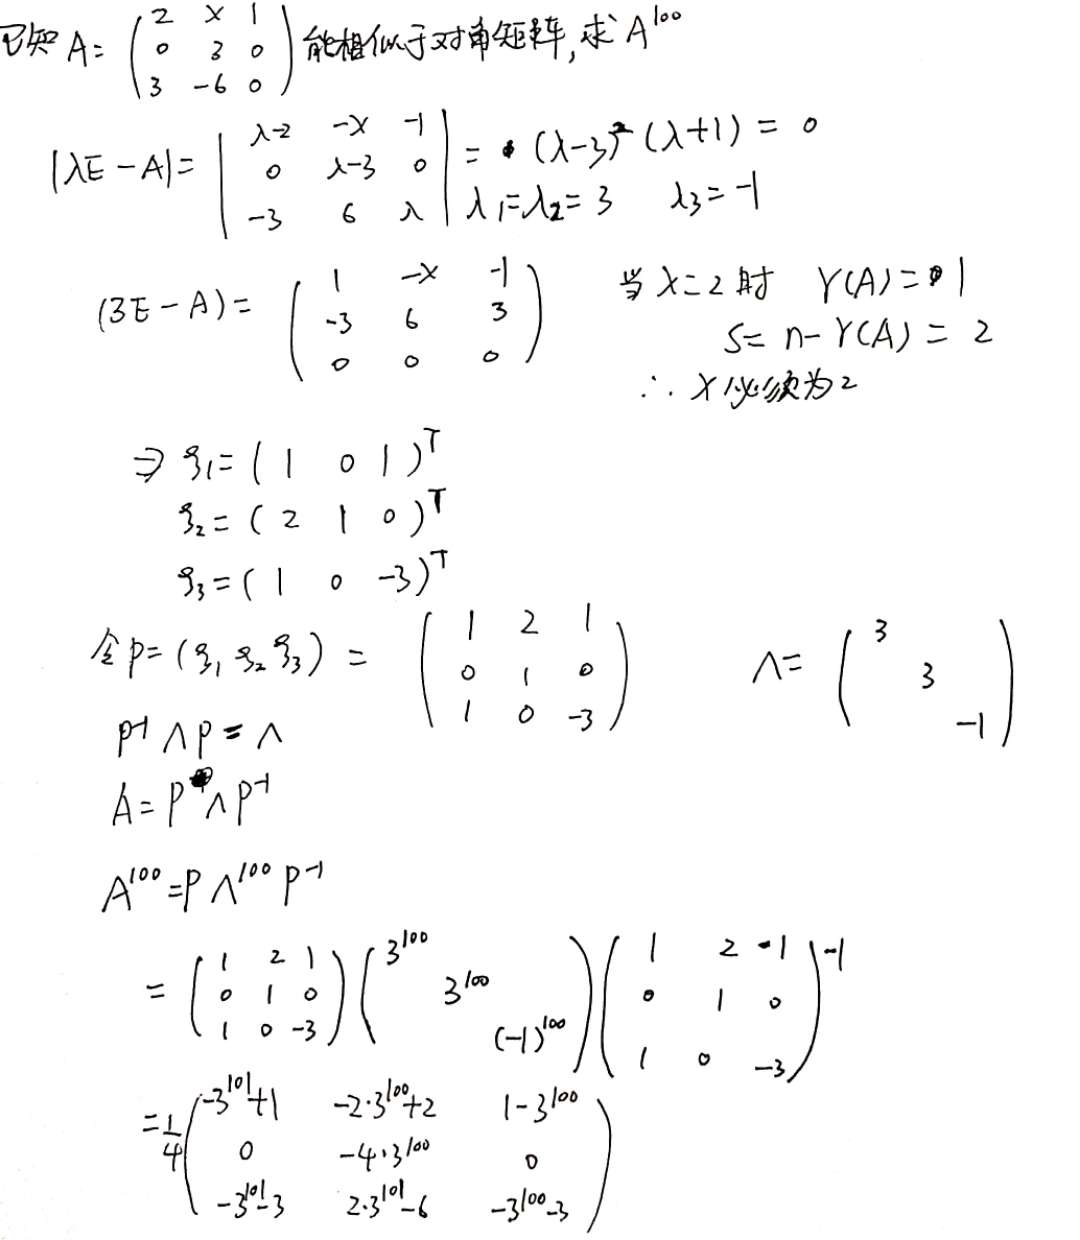 已知 A= ( 2 x 1 ; 0 3 0 ; 3 -6 0 ) 能相似于对角矩阵,求 A^100
|λE-A|= | λ-2 -x -1 ; 0 λ-3 0 ; -3 6 λ | = (λ-3)^2 (λ+1) = 0
λ1=λ2=3 λ3=-1
(3E-A)= ( 1 -x -1 ; -3 6 3 ; 0 0 0 ) 当 x=2 时 r(A)=1
S= n-r(A) = 2
∴ x 必须为2
⇒ ξ1=( 1 0 1 )^T
ξ2=( 2 1 0 )^T
ξ3=( 1 0 -3 )^T
令 p=(ξ1 ξ2 ξ3) = ( 1 2 1 ; 0 1 0 ; 1 0 -3 ) Λ= ( 3 ; 3 ; -1 )
p^-1 Λ p = Λ
A= P Λ P^-1
A^100 = P Λ^100 P^-1
= ( 1 2 1 ; 0 1 0 ; 1 0 -3 ) ( 3^100 ; 3^100 ; (-1)^100 ) ( 1 2 -1 ; 0 1 0 ; 1 0 -3 )^-1
= 1/4 ( -3^101+1 -2·3^100+2 1-3^100 ; 0 -4·3^100 0 ; -3^101-3 2·3^101-6 -3^100-3 )